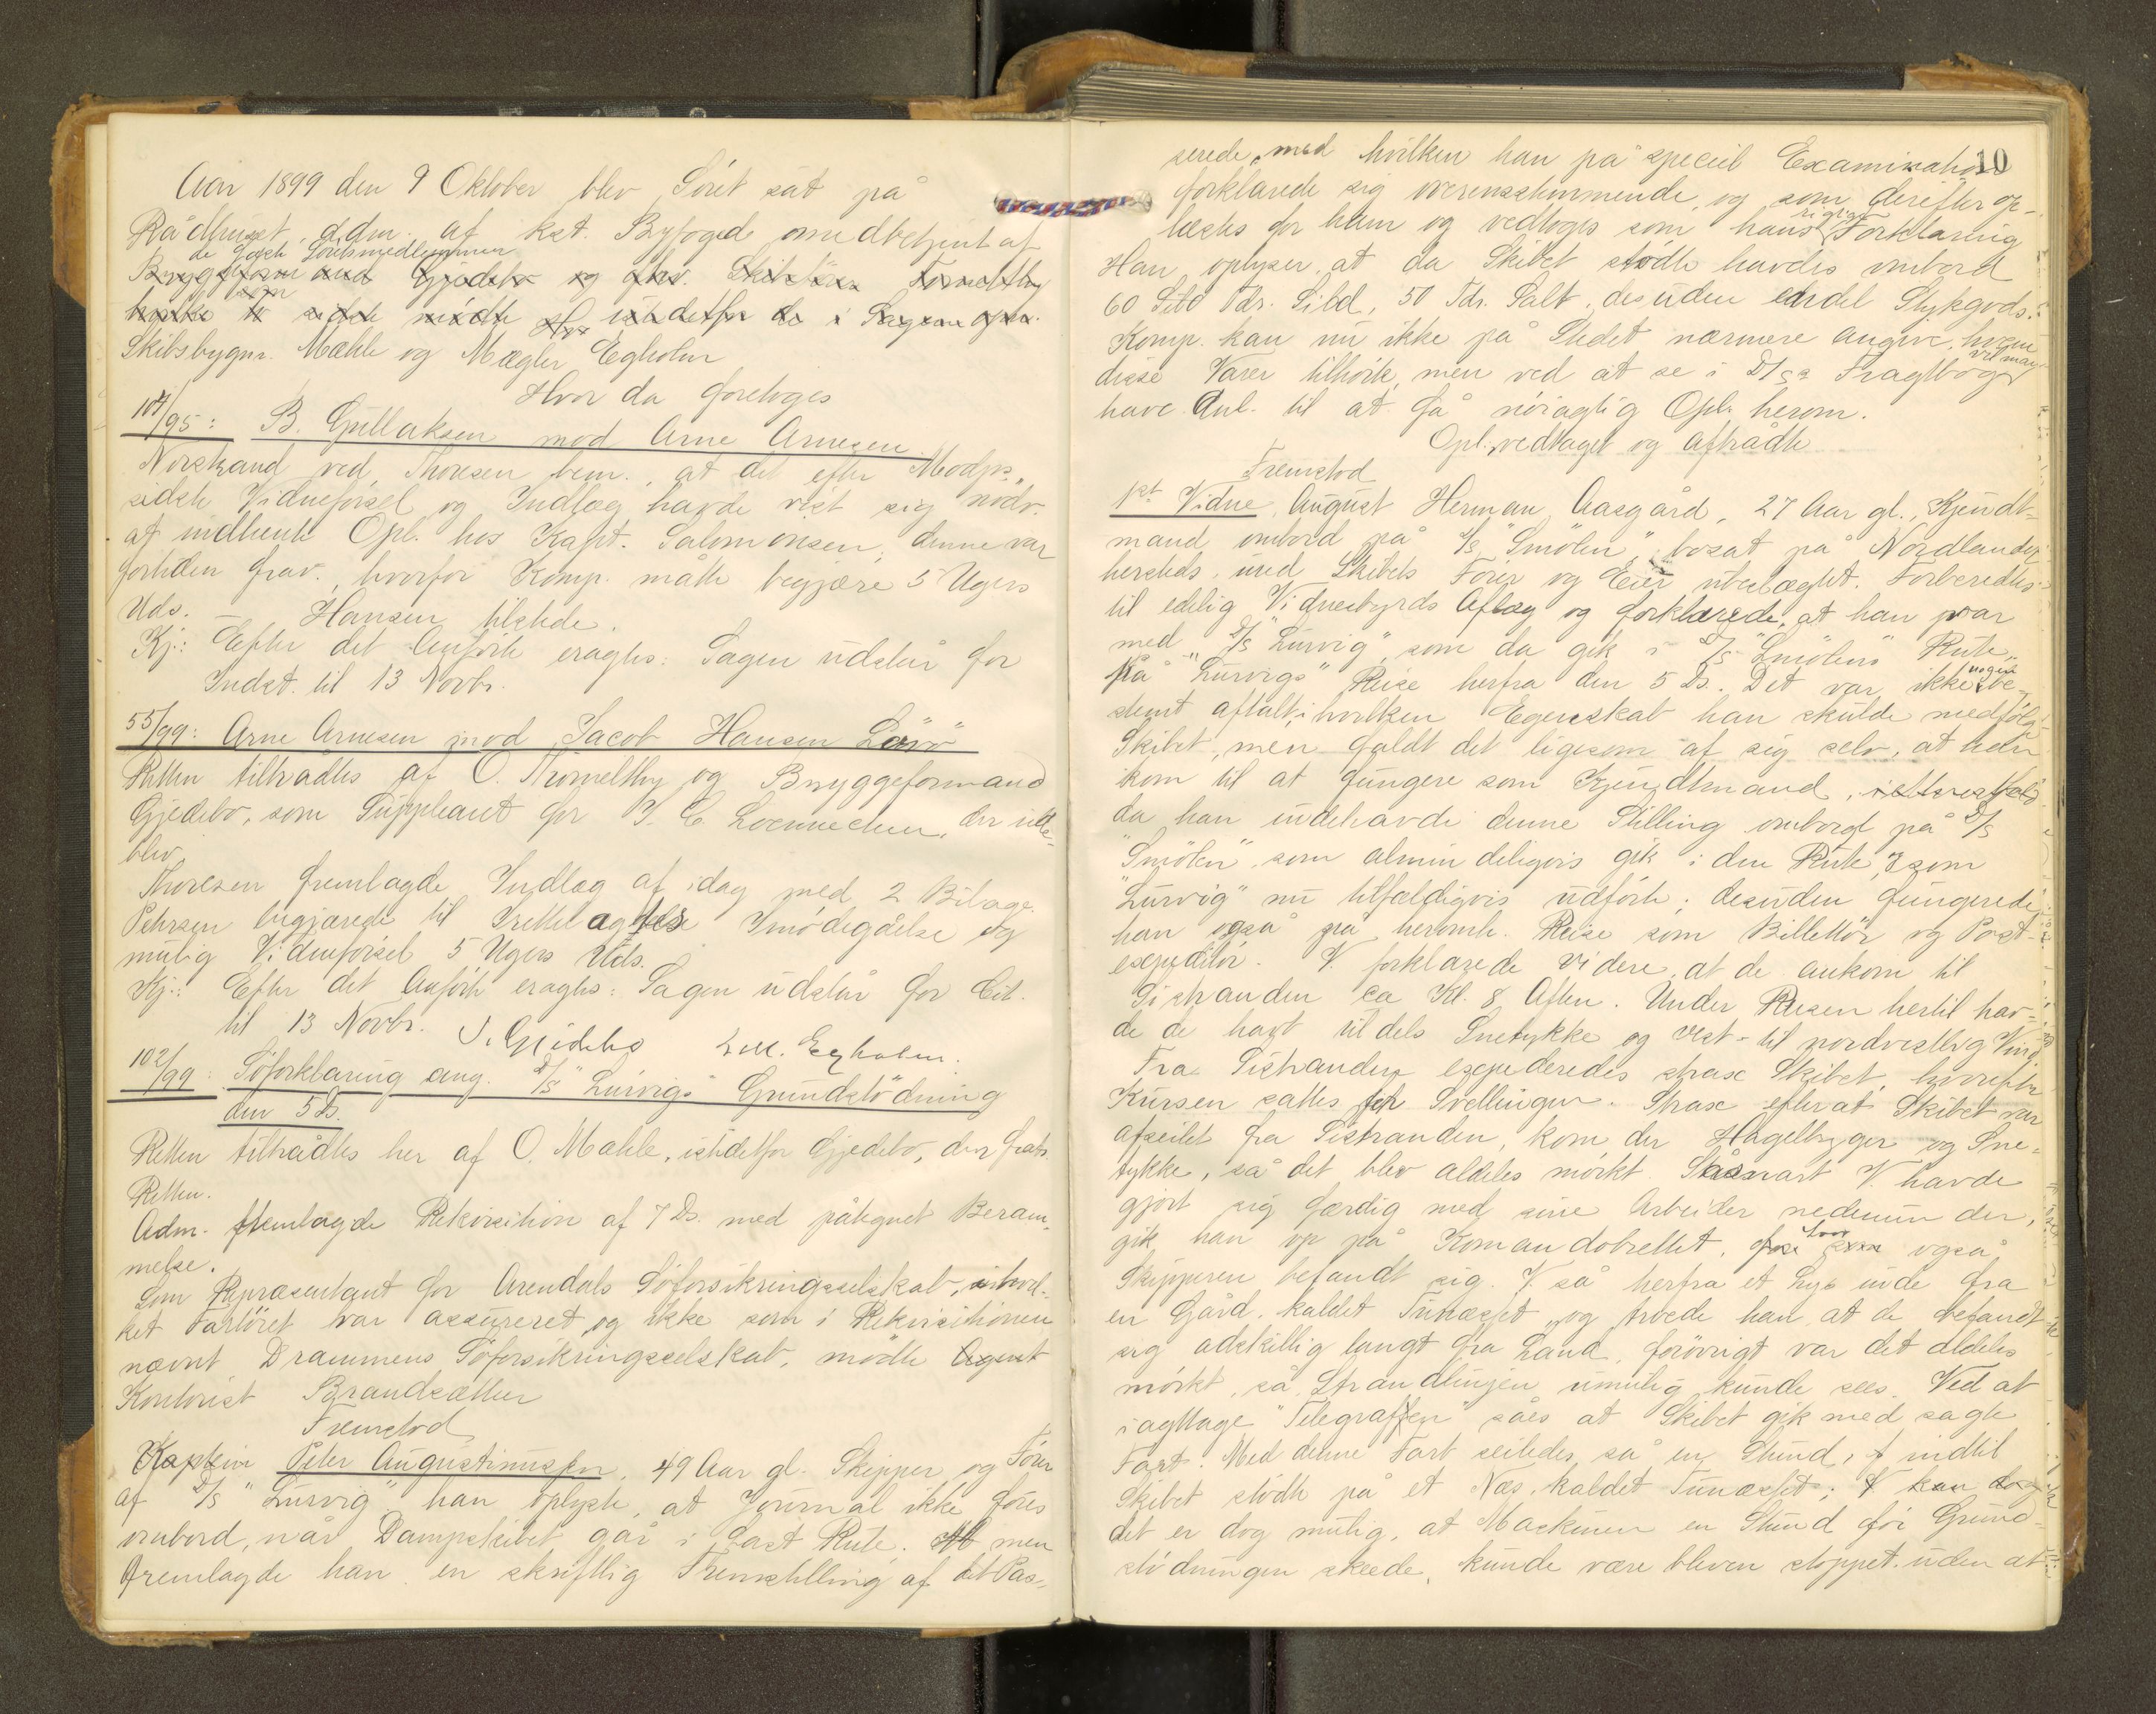 Aar 1899 den 9 Oktober blev Söret sat på
Rådhuset adm. af kst. Byfoged omedbetjent af
de faste Söretsmedlemmer
Skibsbygm. Mæhle og Mægler Egholm
Hvor da foretoges
107/95: B. Gullaksen mod Arne Arnesen.
Norstrand ved Thoresen bem., at det efter Modps.
sidste Vidneførsel og Indlæg havde vist sig nödv.
at indhente Opl. hos Kapt. Salomonsen; denne var
fortiden frav., hvorfor Komp. måtte begjære 5 Ugers
Uds. – Hansen tilstede.
Kj.: Efter det Anförte eragtes: Sagen udstår for
Indst. til 13 Novbr.
55/99: Arne Arnesen mod Jacob Hansen Lövö
Retten tiltradtes af O. Tromelthy og Bryggeformand
Gjedebo, som Suppleant for J. C. Loennechen, der ude-
blev.
Thoresen fremlagde Indlæg af idag med 2 Bilage.
Petersen begjærede til Irettelæggelse Imödegåelse og
mulig Vidneförsel 5 Ugers Uds.
Kj.: Efter det Anförte eragtes: Sagen udstår for Cit.
til 13 Novbr. J. Gjedebo L. M. Egholm.
102/99: Söforklaring ang. D/S "Lurvigs" Grundstödning
den 5 Ds.
Retten tiltrådtes her af O. Mæhle, istedetfor Gjedebo, der fratr.
Retten.
Adm. fremlagde Rekvisition af 7 Ds. med påtegnet Beram-
melse.
Som Repræsentant for Arendals Söforsikringsselskab, i hvil-
ket Fartöiet var assureret, og ikke som i Rekvisitionen
nævnt Drammens Söforsikringsselskab, mödte Agent
Kontorist Brandsætter
Fremstod
Kaptein Peter Augustinussen, 49 Aar gl. Skipper og Förer
af D/S "Lurvig"; han oplyste, at Journal ikke föres
ombord, når Dampskibet går i fast Rute. men
fremlagde han en skriftlig Fremstilling af det Pas-
10
serede, med hvilken han på speciel Examination
forklarede sig overensstemmende, og som derefter op-
læstes for ham og vedtoges som hans rigtige Forklaring
Han oplyser, at da Skibet stödte havdes ombord
60 Tdr. Sild, 50 Tdr. Salt, desuden endel Stykgods.
Komp. kan nu ikke på Stedet nærmere angive, hvem
disse Varer tilhörte, men ved at se i D/Ss Fragtbog vil man
have Anl. til at få nöiagtig Opl. herom.
Opl., vedtaget og aftrådte
Fremstod
1ste Vidne, August Herman Aasgård, 27 Aar gl., Kjendt-
mand ombord på D/S "Smölen", bosat på Nordlandet
hersteds, med Skibets Förer og Eier ubeslægtet. Forberedtes
til edelig Vidnesbyrds Aflæg og forklarede, at han var
med D/S "Lurvig", som da gik i D/S "Smölens" Rute,
på "Lurvigs" Reise herfra den 5 Ds. Det var ikke noget be-
stemt aftalt, i hvilken Egenskab han skulde medfölge
Skibet, men faldt det ligesom af sig selv, at han
kom til at fungere som Kjendtmand,
da han indehavde denne Stilling ombord på D/S
"Smölen", som almindeligvis gik i den Rute, som
"Lurvig" nu tilfældigvis udförte; desuden fungerede
han også på heromh. Reise som Billettör og Post-
expeditör. V. forklarede videre, at de ankom til
Sistranden ca Kl. 8 Aften. Under Reisen hertil hav-
de de havt tildels Snetykke og vest- til nordvestlig Vind.
Fra Sistranden expederedes strax Skibet, hvorefter
Kursen sattes for Svellingen. Strax efterat Skibet var
afseilet fra Sistranden, kom der Hagelbyger og Sne-
tykke, så det blev aldeles mörkt. Såsnart V. havde
gjort sig færdig med sine Arbeider nedenunder,
gik han op på Komandobrettet, hvor også
Skipperen befandt sig. V. så herfra et Lys inde fra
en Gård, kaldet Tunæsset, og troede han, at de befandt
sig adskillig langt fra Land, forövrigt var det aldeles
mörkt, så Strandlinjen umulig kunde sees. Ved at
iagttage "Telegraffen" såes at Skibet gik med sagte
Fart. Med denne Fart seiledes så en Stund, indtil
Skibet stödte på et Næs, kaldet Tunæsset;
det er dog mulig, at Maskinen en Stund för Grund-
stödningen skeede, kunde være bleven stoppet uden at